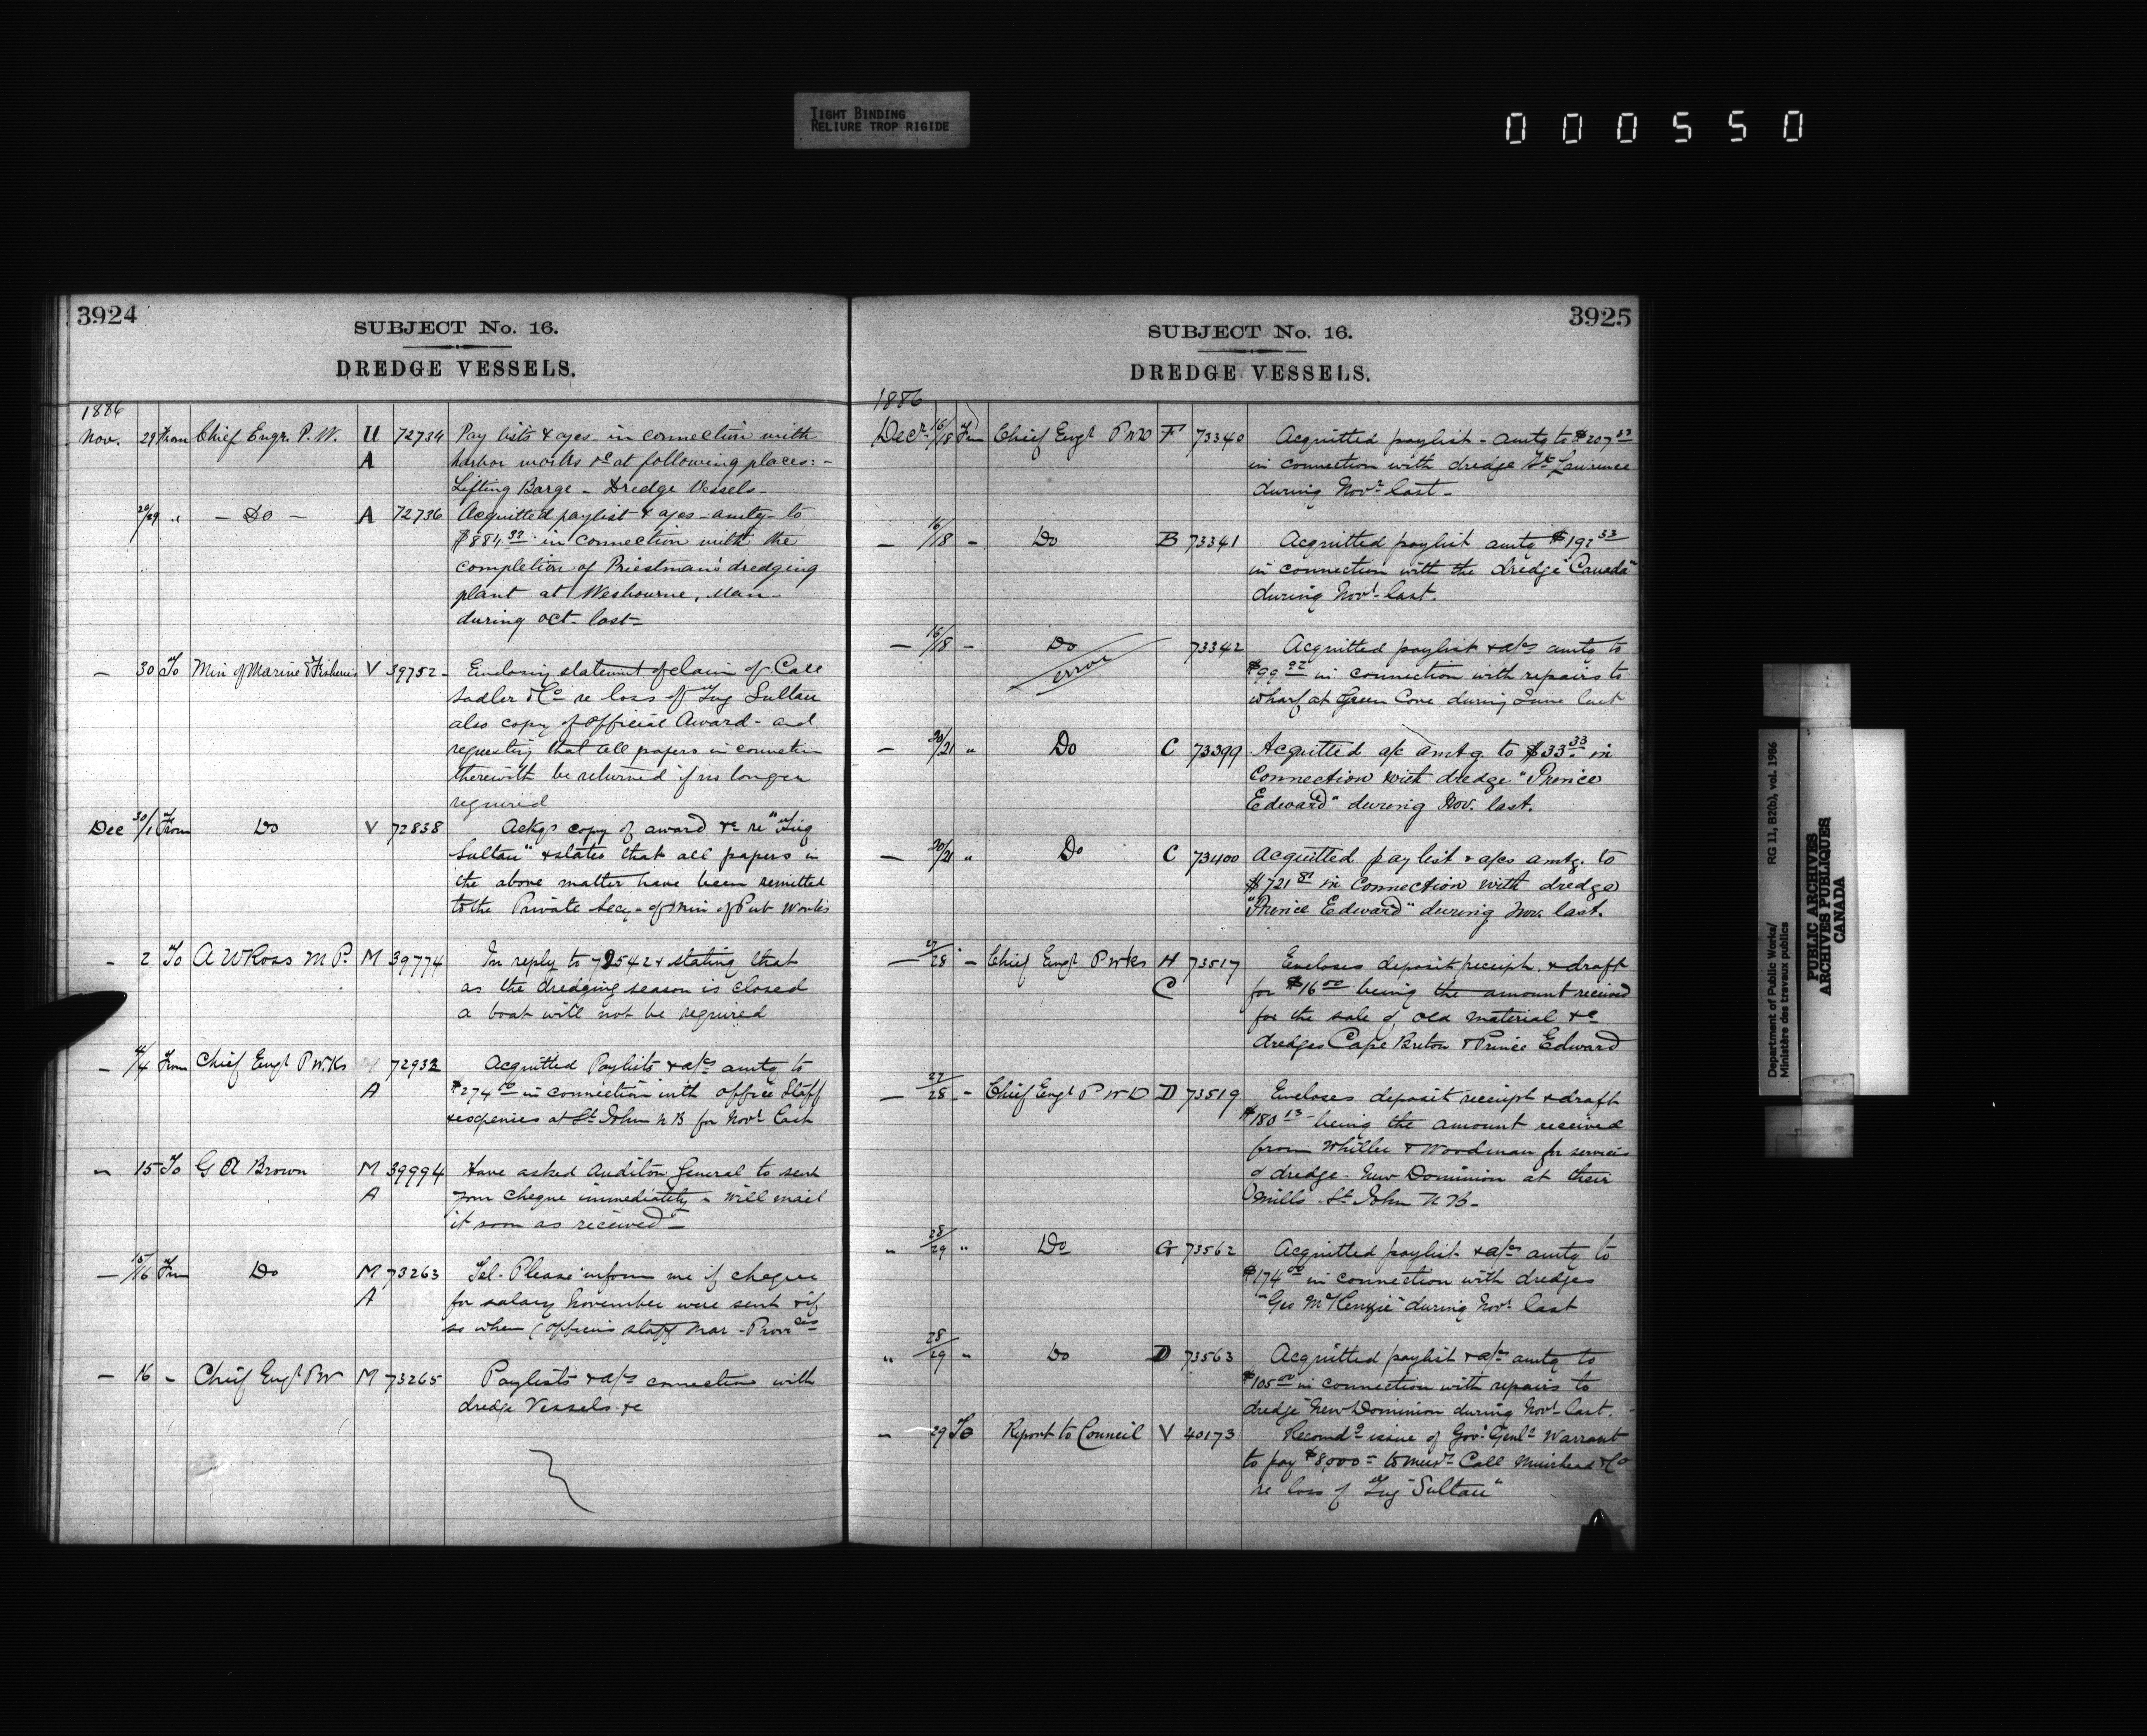 TIGHT BINDING
RELIURE TROP RIGIDE
000550
3924
SUBJECT No. 16.
DREDGE VESSELS.
1886
Nov. 29 From Chief Engr. P. W. U 72734 Pay lists & a/cs in connection with
A harbor works &c at following places:-
Lifting Barge - Dredge Vessels-
29 " - Do - A 72736 Acquitted paylist & a/cs - amtg - to
$884 in connection with the
completion of Priestman's dredging
plant at Westbourne, Man -
during Oct. last-
- 30 To Min of Marine & Fisheries V 39752 - Enclosing statement of claim of Call
Sadler & Co re loss of Tug Sultan
also copy of Official Award - and
requesting that all papers in connection
therewith be returned if no longer
required
Dec 30/1 From Do V 72838 Ackgs copy of award &c re "Tug
Sultan" & states that all papers in
the above matter have been remitted
to the Private Secy - of Min of Pub Works
- 2 To A W Ross M P. M 39774 In reply to 72542 & stating that
as the dredging season is closed
a boat will not be required
- 4 From Chief Engr P Wks M 72932 Acquitted Paylists & a/cs amtg to
A $274 in connection with office Staff
& expenses at St John N B for Novr last
- 15 To G A Brown M 39994 Have asked Auditor General to send
A your cheque immediately - will mail
it soon as received -
- 15/16 Frm Do M 73263 Tel - Please inform me if cheques
A for salary November were sent & if
so when (Officers staff Mar - Provces
- 16 - Chief Engr PW M 73265 Paylists & a/cs connection with
dredge Vessels &c
3925
SUBJECT No. 16.
DREDGE VESSELS.
1886
Decr 16/18 Frm Chief Engr P W D F 73340 Acquitted paylist - amtg to $207
in connection with dredge St Lawrence
during Novr last -
- 16/18 - Do B 73341 Acquitted paylist amtg $192 33
in connection with the dredge "Canada"
during Novr last.
- 16/18 - Do 73342 Acquitted paylist & a/cs amtg to
error $99 92 in connection with repairs to
wharf at Green Cove during June last
- 20/21 " Do C 73399 Acquitted a/c amtg to $33 33 in
connection with dredge "Prince
Edward" during Nov. last.
- 20/21 " Do C 73400 Acquitted paylist & a/cs amtg. to
$721 81 in connection with dredge
"Prince Edward" during Nov. last.
- 27/28 - Chief Engr P Wks H 73517 Encloses deposit receipt & draft
C for $16 00 being the amount received
for the sale of old material &c
dredges Cape Breton & Prince Edward
- 27/28 - Chief Engr P W D D 73519 Encloses deposit receipt & draft
$180 13 - being the amount received
from Whittier & Woodman for services
of dredge - New Dominion at their
mills - St John N B -
" 28/29 " Do G 73562 Acquitted paylist & a/cs amtg to
$174 00 in connection with dredges
"Geo McKenzie" during Novr last
" 28/29 - Do D 73563 Acquitted paylist & a/cs amtg to
$105 00 in connection with repairs to
dredge "New Dominion during Novr last.
- 29 To Report to Council V 40173 Recomdg issue of Govr Genls Warrant
to pay $8,000 = to Messrs Call Muirhead & Co
re loss of Tug "Sultan"
Department of Public Works/ RG 11, B2(b), vol. 1986
Ministère des travaux publics
PUBLIC ARCHIVES
ARCHIVES PUBLIQUES
CANADA